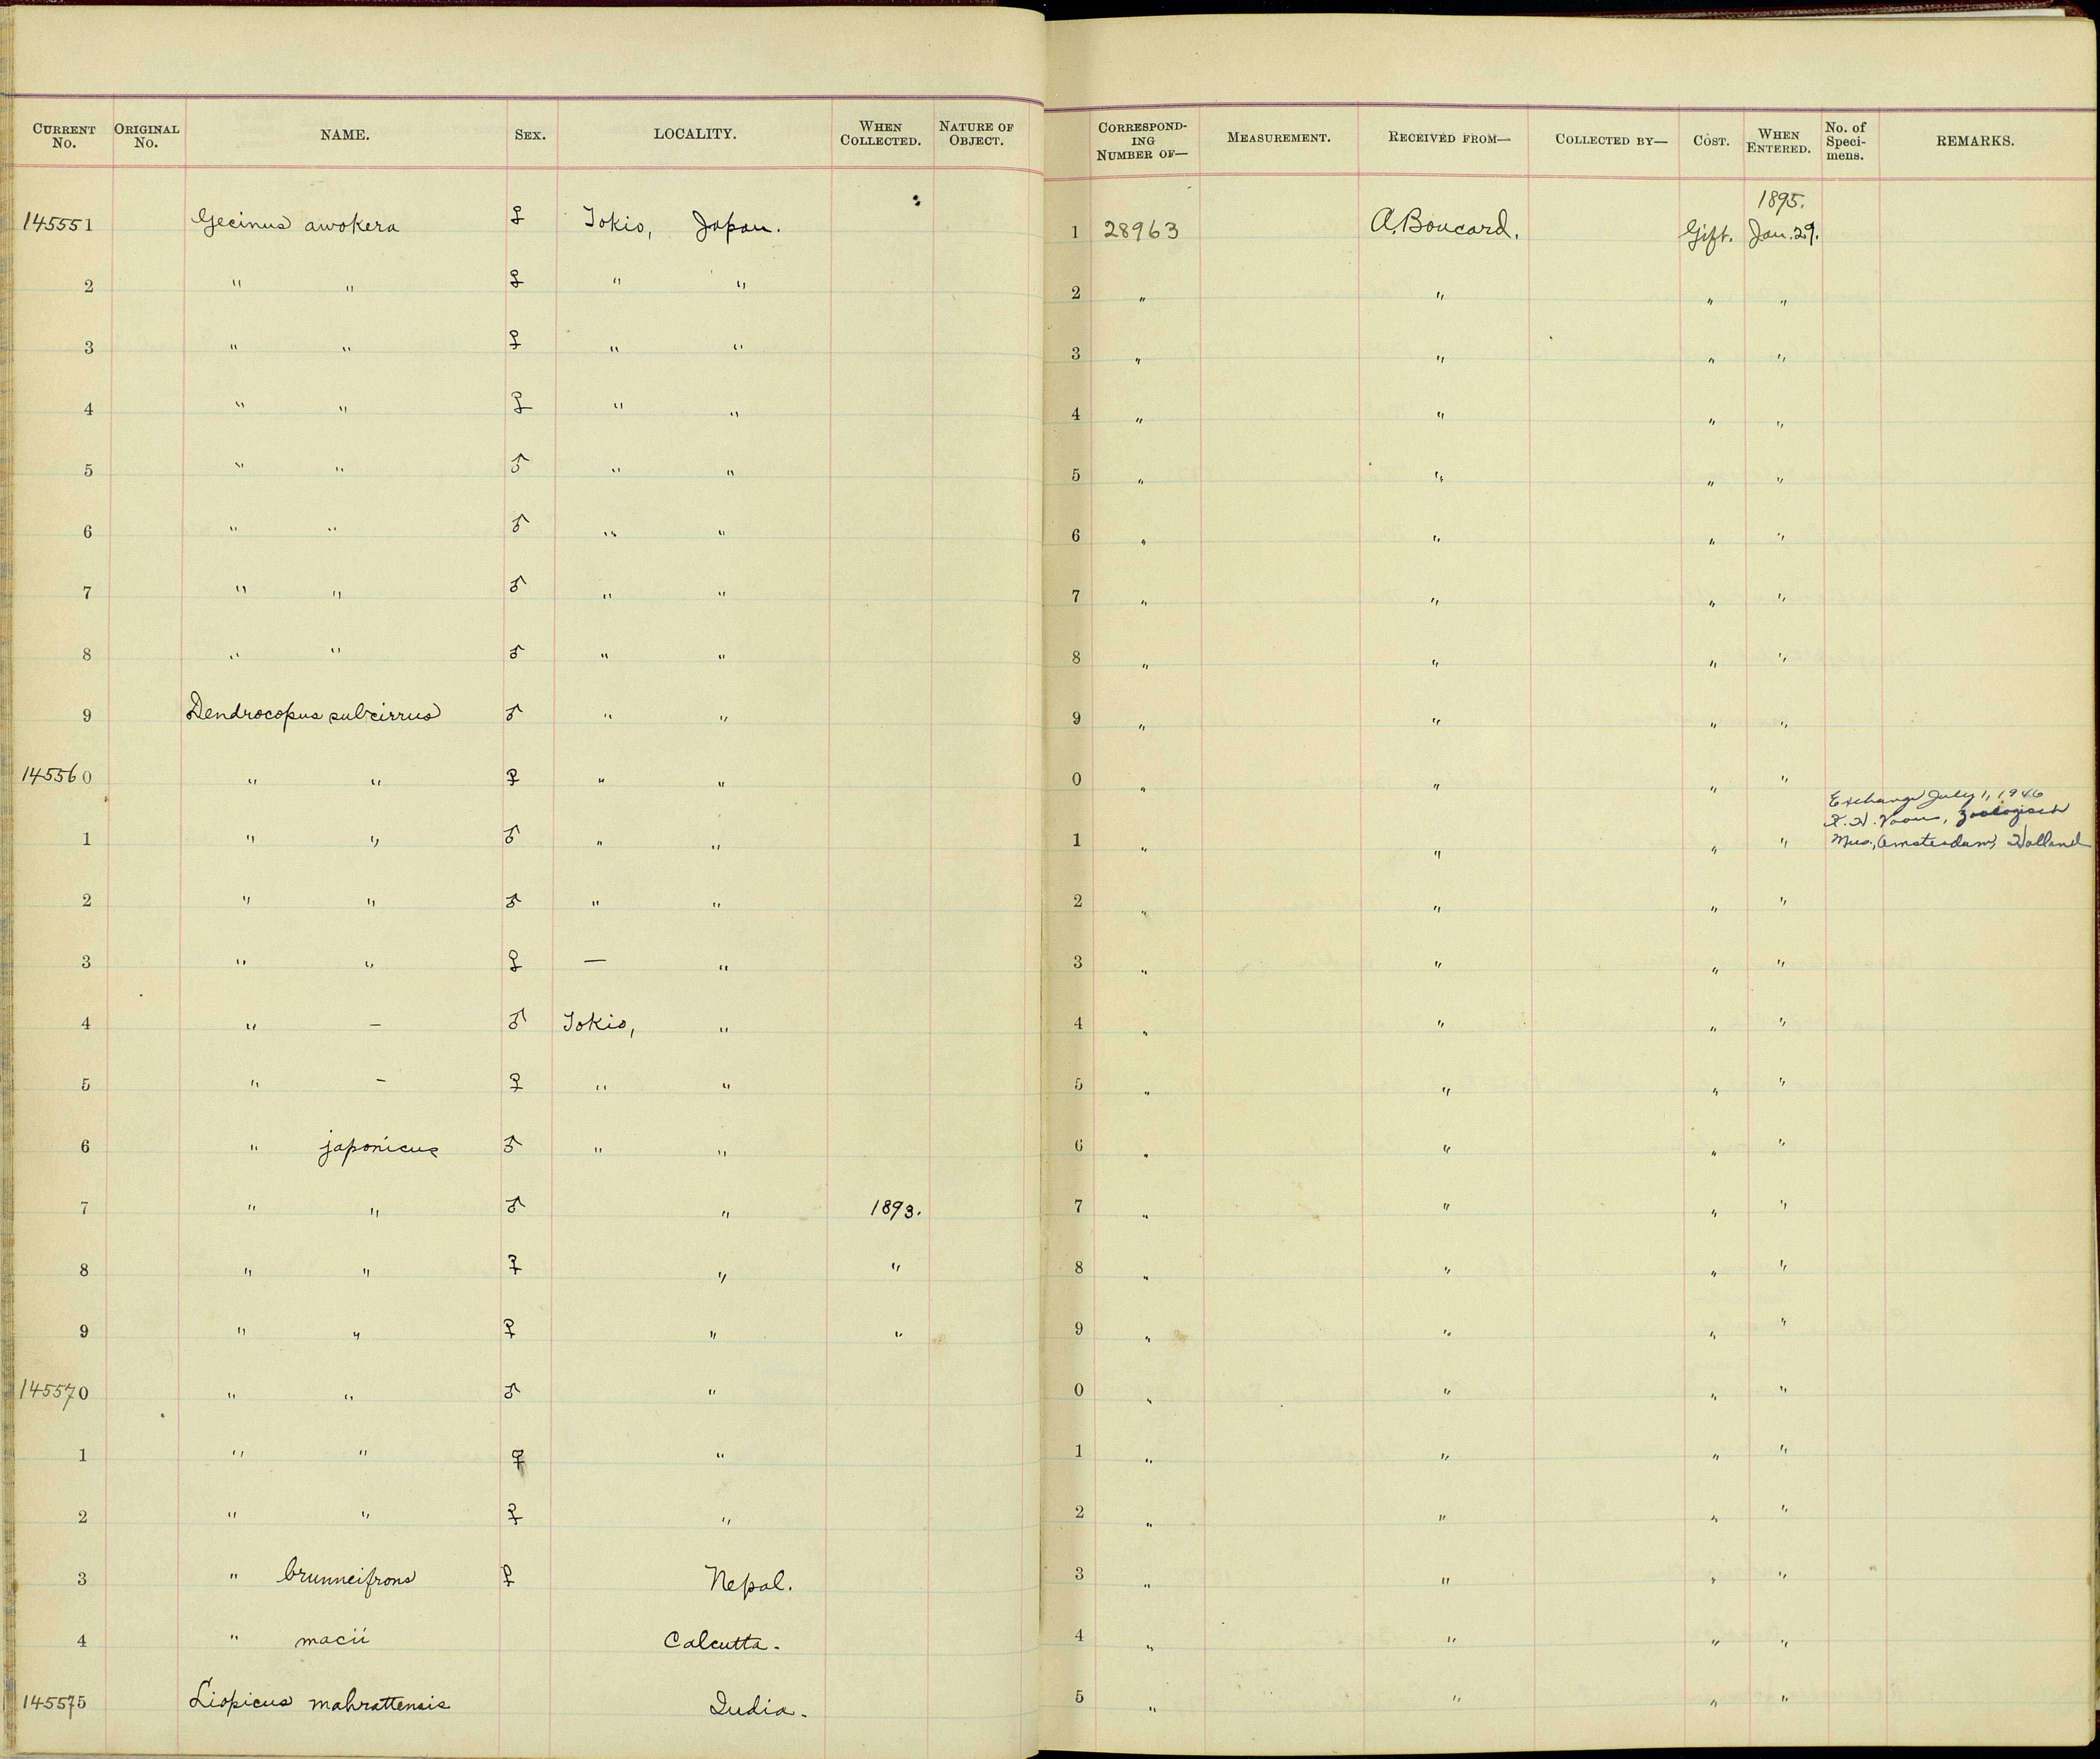 CURRENT No. ORIGINAL No. NAME. SEX. LOCALITY. WHEN COLLECTED. NATURE OF OBJECT. CORRESPOND-ING NUMBER OF— MEASUREMENT. RECEIVED FROM— COLLECTED BY— COST. WHEN ENTERED. No. of Speci-mens. REMARKS.
1895.
145551 Gecinus awokera ♀ Tokio, Japan. 1 28963 A. Boucard. Gift. Jan. 29.
2 " " ♀ " " 2 " " " "
3 " " ♀ " " 3 " " " "
4 " " ♀ " " 4 " " " "
5 " " ♂ " " 5 " " " "
6 " " ♂ " " 6 " " " "
7 " " ♂ " " 7 " " " "
8 " " ♂ " " 8 " " " "
9 Dendrocopus subcirrus ♂ " " 9 " " " "
145560 " " ♀ " " 0 " " " "
Exchange July 1, 1946
Zoologisch
1 " " ♂ " " 1 " " " " Mus., Amsterdam, Holland
2 " " ♂ " " 2 " " " "
3 " " ♀ — " 3 " " " "
4 " — ♂ Tokio, " 4 " " " "
5 " — ♀ " " 5 " " " "
6 " japonicus ♂ " " 6 " " " "
7 " " ♂ " 1893. 7 " " " "
8 " " ♀ " " 8 " " " "
9 " " ♀ " " 9 " " " "
145570 " " ♂ " 0 " " " "
1 " " ♀ " 1 " " " "
2 " " ♀ " 2 " " " "
3 " brunneifrons ♀ Nepal. 3 " " " "
4 " macii Calcutta. 4 " " " "
145575 Liopicus mahrattensis India. 5 " " " "